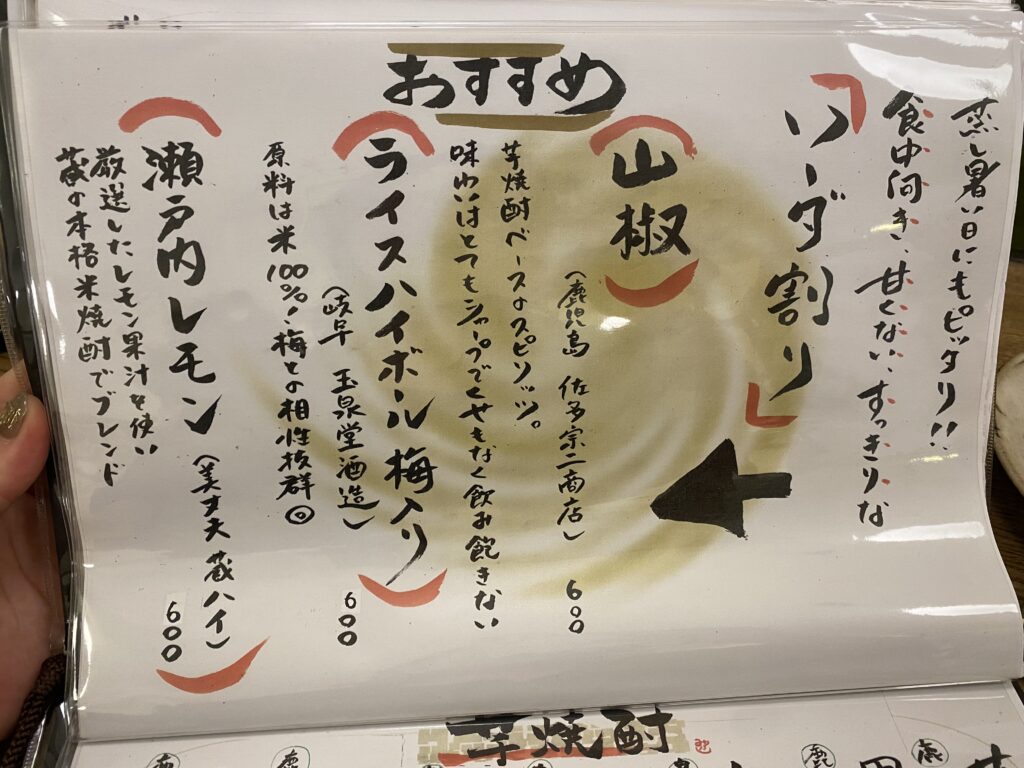 おすすめ
蒸し暑い日にもピッタリ!!
食中向き、甘くない、すっきりな
「ソーダ割り」
山椒
(鹿児島 佐多宗二商店) 600
芋焼酎ベースのスピリッツ。
味わいはとてもシャープでくせもなく飲み飽きない
ライスハイボール 梅入り
(岐阜 玉泉堂酒造) 600
原料は米100%!梅との相性抜群◎
瀬戸内レモン
(美丈夫 蔵ハイ) 600
厳選したレモン果汁を使い
蔵の本格米焼酎でブレンド
芋焼酎
鹿
鹿
鹿
鹿